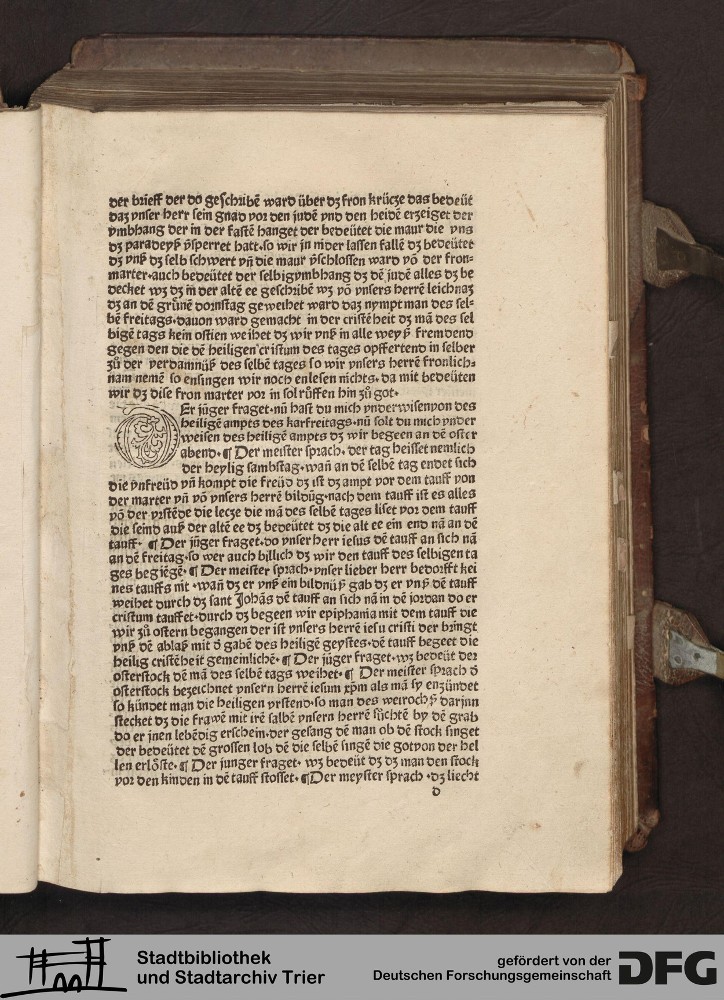 der brieff der do geschribē ward über dʒ fron krücʒe das bedeüt
daʒ ynser herr sein gnad vor den judē vnd den heidē erʒeiget der
vmbhang der in der fastē hanget der bedeütet die maur die vns
dʒ paradeyß v̄sperret hatt·so wir in nider lassen fallē dʒ bedeütet
dʒ vnß dʒ selb schwert vn̄ die maur v̄schlossen ward vō der fron⸗
marter·auch bedeütet der selbig vmbhang dʒ dē judē alles dʒ be
decket wʒ dʒ in̄ der altē ee geschribē wʒ vō vnsers herrē leichnaʒ
dʒ an dē grūnē dornstag geweihet ward daʒ nympt man des sel⸗
bē freitags·dauon ward gemacht in der cristēheit dʒ mā des sel
bigē tags kein ostien weihet dʒ wir vnß in alle weyß fremdend
gegen den die dē heiligen cristum des tages opffertend in selber
zů der verdamnüß des selbē tages so wir vnsers herrē fronlich⸗
nam nemē so ensingen wir noch enlesen nichts·da mit bedeüten
wir dʒ dise fron marter vor in sol rüffen hin zů got·
DEr jüger fraget·nū hast du mich vnderwisen von des
heiligē ampts des karfreitags·nū solt du mich vnder
weisen des heiligē ampts dʒ wir begeen an dē oster
abend·¶ Der meister sprach·der tag heisset nemlich
der heylig sambstag·wan̄ an dē selbē tag endet sich
die vnfreüd vn̄ kompt die freüd dʒ ist dʒ ampt vor dem tauff von
der marter vn̄ vō vnsers herrē bildūg·nach dem tauff ist es alles
vō der vrstēde die lecʒe die mā des selbē tages liset vor dem tauff
die seind auß der altē ee dʒ bedeütet dʒ die alt ee ein end nā an dē
tauff· ¶ Der jüger fraget·do vnser herr iesus dē tauff an sich nā
an dē freitag·so wer auch billich dʒ wir den tauff des selbigen ta
ges begiēgē·¶ Der meister sprach·vnser lieber herr bedorfft kei
nes tauffs nit·wan̄ dʒ er vnß ein bildnüß gab dʒ er vnß dē tauff
weihet durch dʒ sant Johās dē tauff an sich nā in dē jordan do er
cristum tauffet·durch dʒ begeen wir epiphania mit dem tauff die
wir zů ostern begangen der ist vnsers herrē iesu cristi der bringt
vnß dē ablaß mit d̄ gabē des heiligē geystes·dē tauff begeet die
heilig cristēheit gemeinlichē·¶ Der jüger fraget·wʒ bedeüt der
osterstock dē mā des selbē tags weihet·¶ Der meister sprach d̄
osterstock beʒeichnet vnsern herrē iesum xp̄m als mā sy enʒündet
so kündet man die heiligen vrstend·so man des weirochß darjnn
stecket dʒ die frawē mit irē salbē vnsern herrē sůchtē by dē grab
do er jnen lebēdig erschein·der gesang dē man ob dē stock singet
der bedeütet dē grossen lob dē die selbē singē die got von der hel
len erlōste·¶ Der junger fraget· wʒ bedeüt dʒ dʒ man den stock
vor den kinden in dē tauff stosset·¶Der meyster sprach ·dʒ liecht
d
Stadtbibliothek
und Stadtarchiv Trier
gefördert von der
Deutschen Forschungsgemeinschaft
DFG